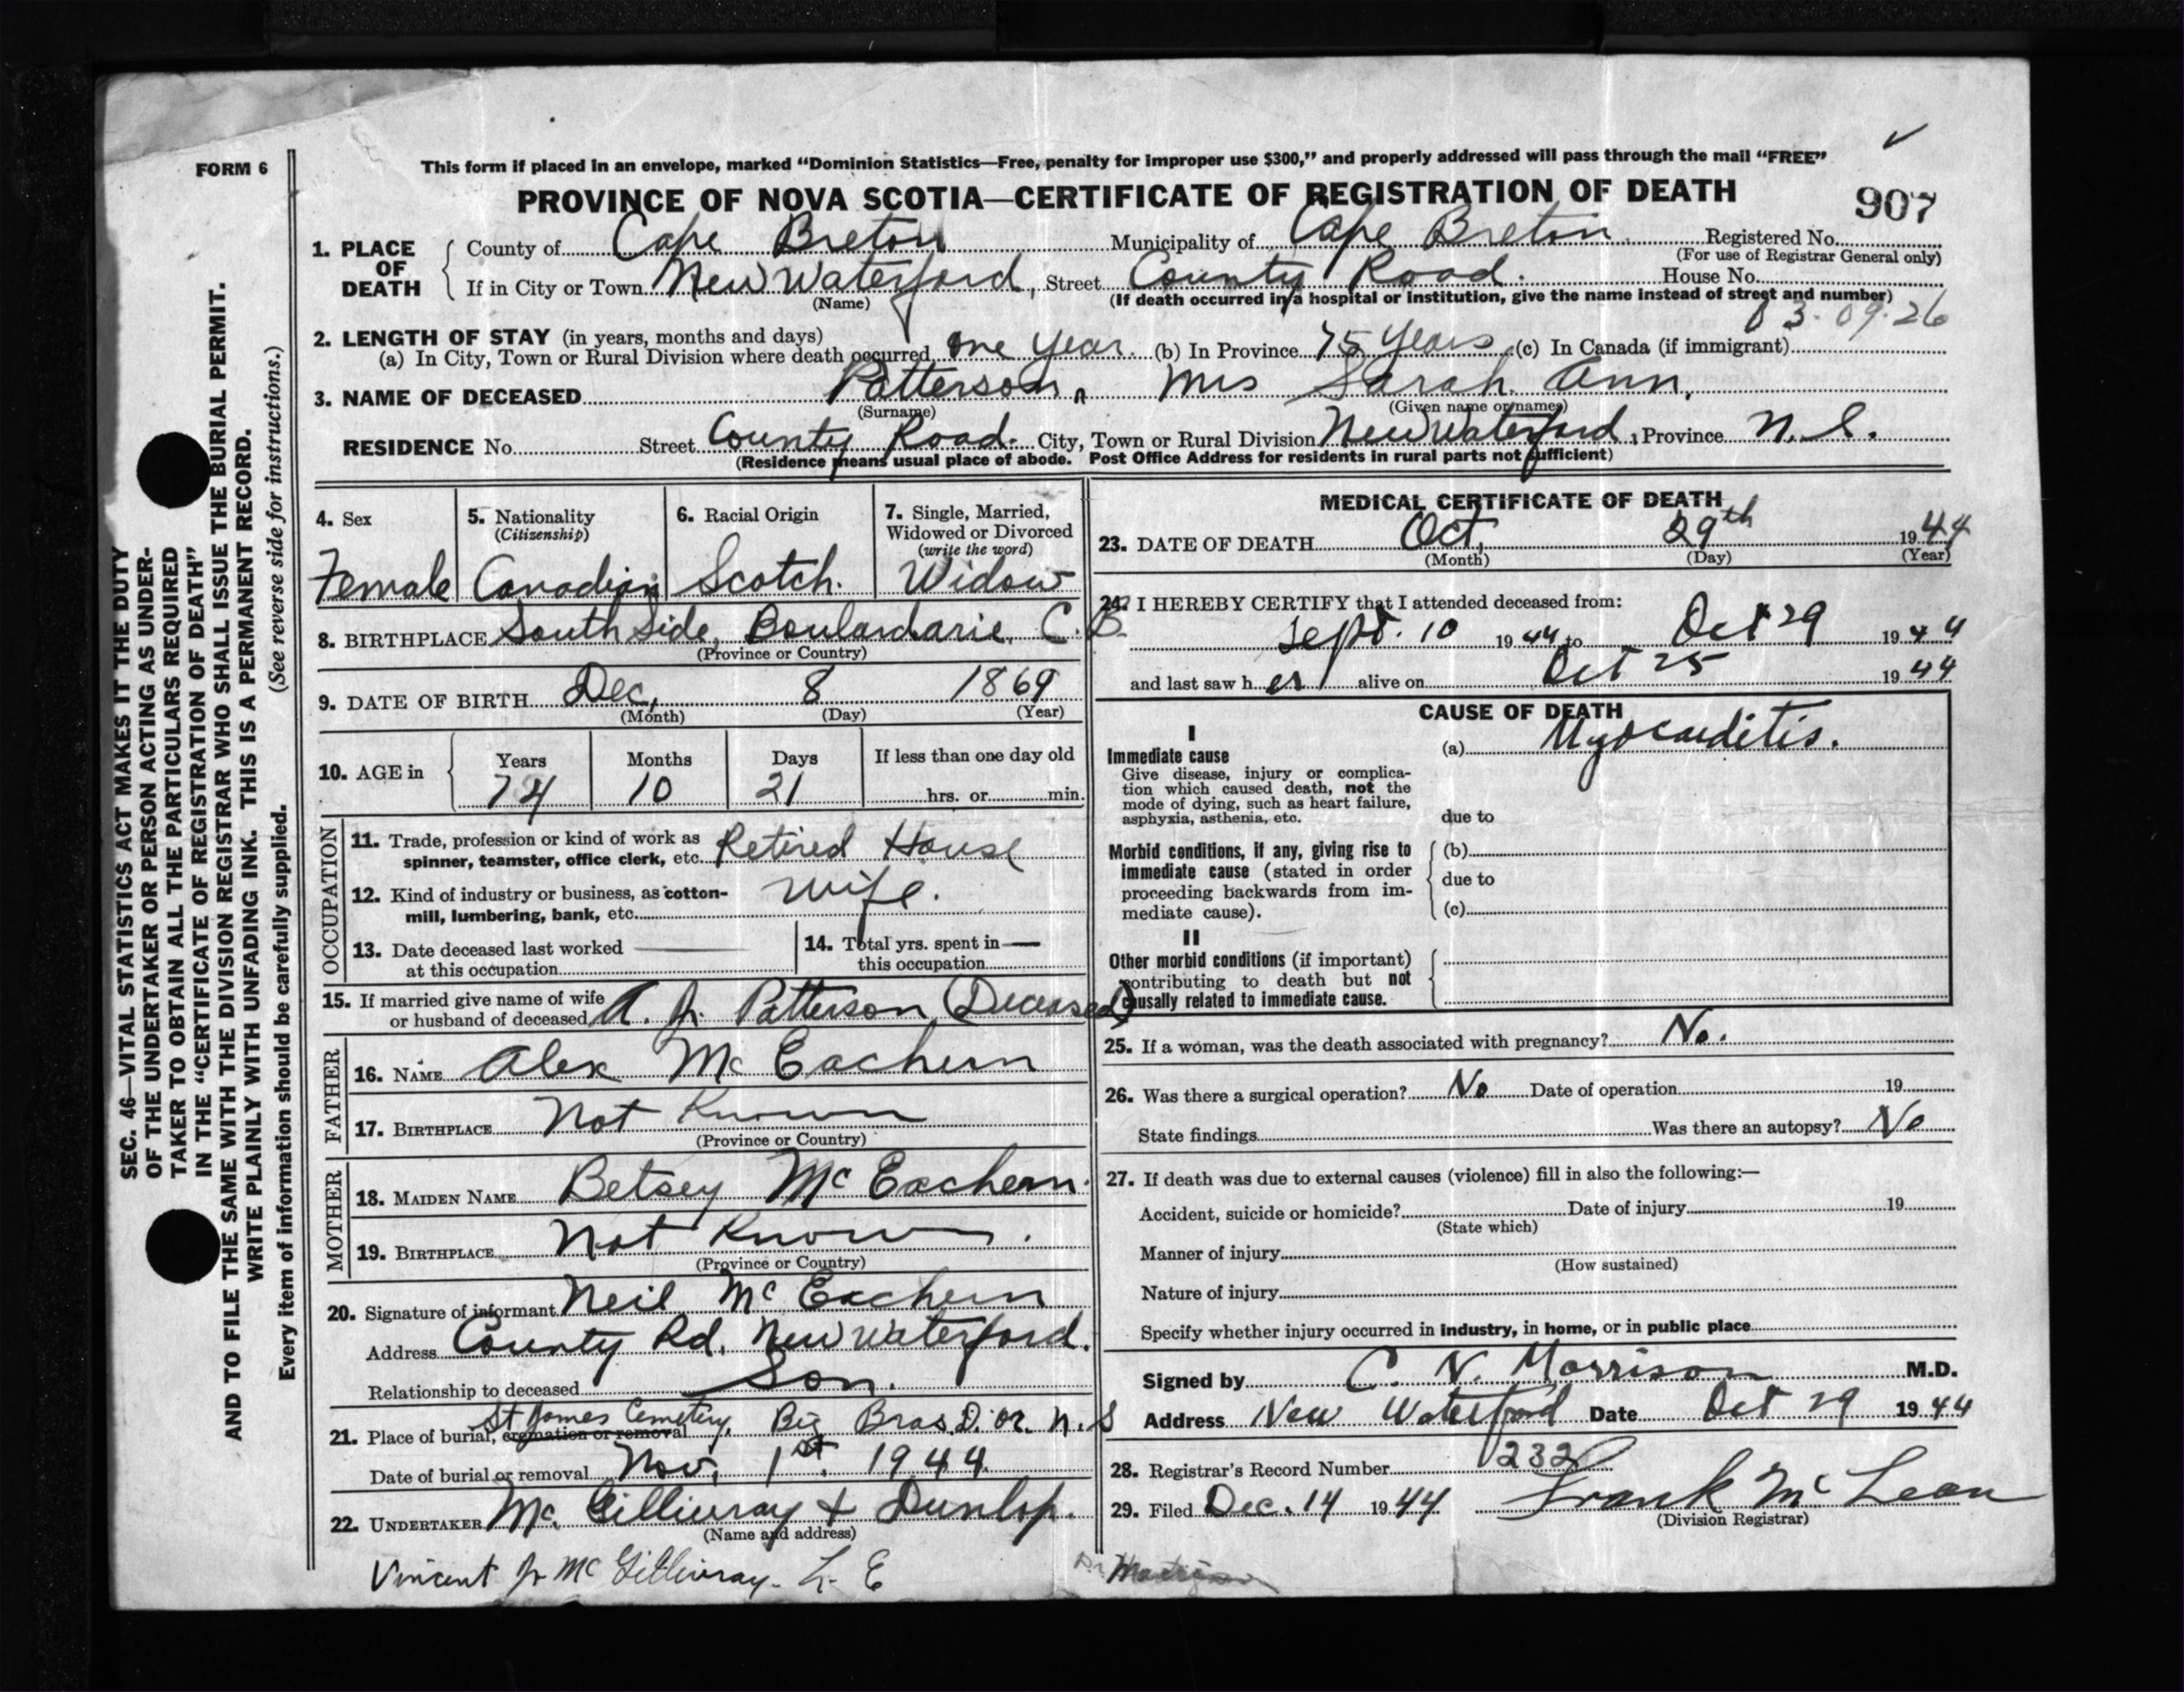 ✓
FORM 6
This form if placed in an envelope, marked “Dominion Statistics—Free, penalty for improper use $300,” and properly addressed will pass through the mail “FREE”
PROVINCE OF NOVA SCOTIA—CERTIFICATE OF REGISTRATION OF DEATH
907
1. PLACE OF DEATH
County of Cape Breton Municipality of Cape Breton Registered No.
(For use of Registrar General only)
If in City or Town New Waterford, Street County Road. House No.
(Name) (If death occurred in a hospital or institution, give the name instead of street and number)
03.09.26
2. LENGTH OF STAY (in years, months and days)
(a) In City, Town or Rural Division where death occurred one year. (b) In Province 75 years (c) In Canada (if immigrant)
3. NAME OF DECEASED Patterson, Mrs Sarah Ann.
(Surname) (Given name or names)
RESIDENCE No. Street County Road. City, Town or Rural Division New Waterford, Province N. S.
(Residence means usual place of abode. Post Office Address for residents in rural parts not sufficient)
4. Sex
Female
5. Nationality
(Citizenship)
Canadian
6. Racial Origin
Scotch.
7. Single, Married, Widowed or Divorced
(write the word)
Widow
8. BIRTHPLACE South Side, Boulardarie, C.B.
(Province or Country)
9. DATE OF BIRTH Dec, 8 1869
(Month) (Day) (Year)
10. AGE in
Years Months Days If less than one day old
74 10 21 hrs. or min.
OCCUPATION
11. Trade, profession or kind of work as
spinner, teamster, office clerk, etc. Retired House
12. Kind of industry or business, as cotton-
mill, lumbering, bank, etc. wife.
13. Date deceased last worked
at this occupation
14. Total yrs. spent in —
this occupation
15. If married give name of wife
or husband of deceased A. J. Patterson (Deceased)
FATHER
16. NAME Alex Mc Eachern
17. BIRTHPLACE Not Known
(Province or Country)
MOTHER
18. MAIDEN NAME Betsey Mc Eachern.
19. BIRTHPLACE Not Known.
(Province or Country)
20. Signature of informant Neil Mc Eachern
Address County Rd. New Waterford.
Relationship to deceased Son.
21. Place of burial, cremation or removal St James Cemetery, Big Bras D'or. N.S
Date of burial or removal Nov, 1st. 1944.
22. UNDERTAKER Mc. Gillivray & Dunlop.
(Name and address)
Vincent J. Mc Gillivray. L. E
MEDICAL CERTIFICATE OF DEATH
23. DATE OF DEATH Oct, 29th 1944
(Month) (Day) (Year)
24. I HEREBY CERTIFY that I attended deceased from:
Sept. 10 1944 to Oct 29 1944
and last saw her alive on Oct 25 1944
CAUSE OF DEATH
I
Immediate cause
Give disease, injury or complica-
tion which caused death, not the
mode of dying, such as heart failure,
asphyxia, asthenia, etc.
(a) Myocarditis.
due to
Morbid conditions, if any, giving rise to
immediate cause (stated in order
proceeding backwards from im-
mediate cause).
(b)
due to
(c)
II
Other morbid conditions (if important)
contributing to death but not
causally related to immediate cause.
25. If a woman, was the death associated with pregnancy? No.
26. Was there a surgical operation? No Date of operation 19
State findings Was there an autopsy? No
27. If death was due to external causes (violence) fill in also the following:—
Accident, suicide or homicide? Date of injury 19
(State which)
Manner of injury
(How sustained)
Nature of injury
Specify whether injury occurred in industry, in home, or in public place
Signed by C. N. Morrison M.D.
Address New Waterford Date Oct 29 1944
28. Registrar's Record Number 232
29. Filed Dec. 14 1944 Frank Mc Lean
(Division Registrar)
SEC. 46—VITAL STATISTICS ACT MAKES IT THE DUTY
OF THE UNDERTAKER OR PERSON ACTING AS UNDER-
TAKER TO OBTAIN ALL THE PARTICULARS REQUIRED
IN THE “CERTIFICATE OF REGISTRATION OF DEATH”
AND TO FILE THE SAME WITH THE DIVISION REGISTRAR WHO SHALL ISSUE THE BURIAL PERMIT.
WRITE PLAINLY WITH UNFADING INK. THIS IS A PERMANENT RECORD.
(See reverse side for instructions.)
Every item of information should be carefully supplied.